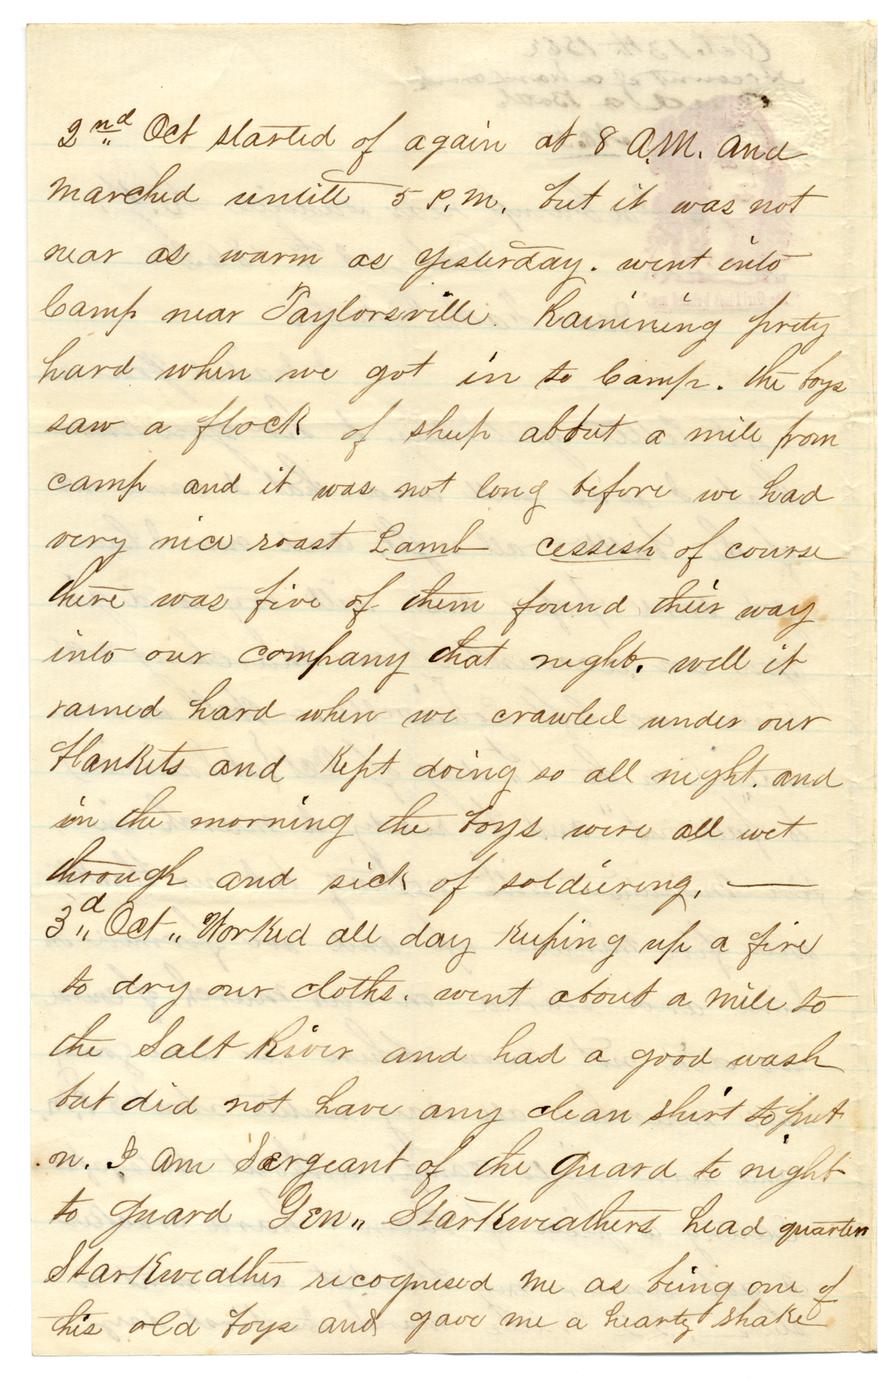 2nd Oct started of again at 8 A.M. and
marched untill 5 P.M. but it was not
near as warm as yesterday. went into
Camp near Taylorsville. Rainining prety
hard when we got in to Camp. the boys
saw a flock of sheep about a mile from
camp and it was not long before we had
very nice roast Lamb cessesh of course
there was five of them found their way
into our company that night. well it
rained hard when we crawled under our
blankets and kept doing so all night. and
in the morning the boys were all wet
through and sick of soldiering. —
3d Oct „ Worked all day keeping up a fire
to dry our cloths. went about a mile to
the Salt River and had a good wash
but did not have any clean shirt to put
on. I am Sergeant of the guard to night
to guard Gen„ Starkweathers head quarters
Starkweather recognised me as being one of
his old boys and gave me a hearty shake